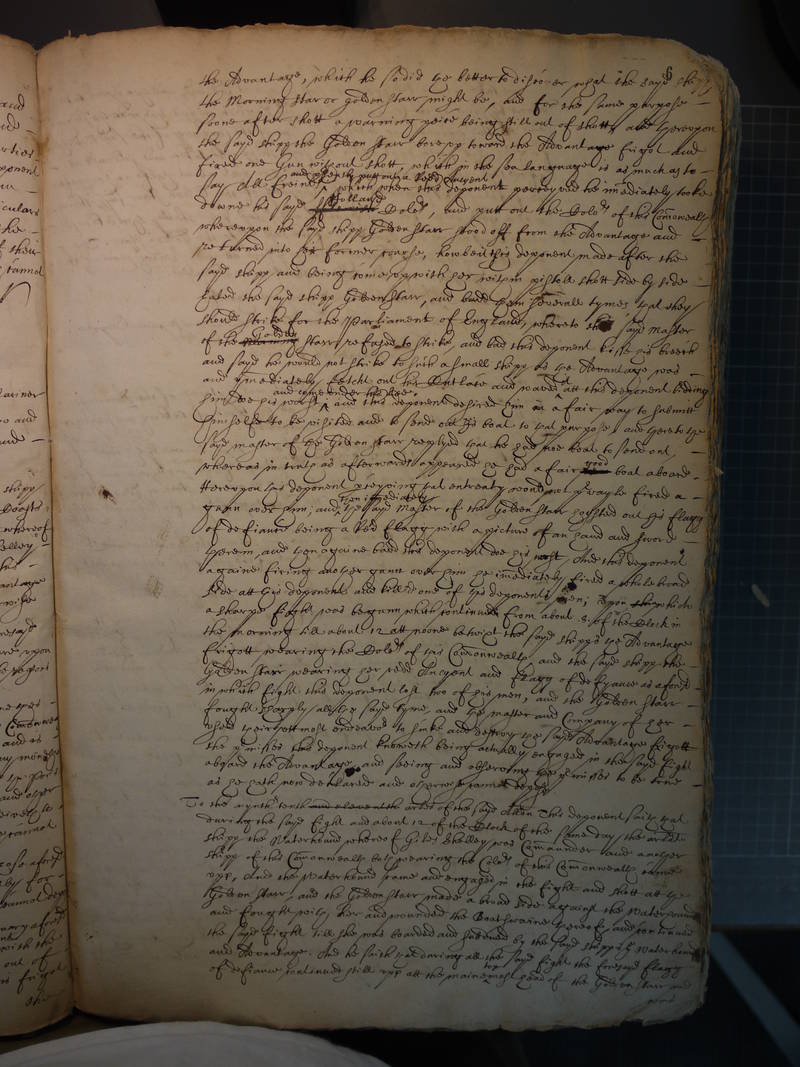 6
the Advantage, which he so did the better to discover what the sayd shipp
the Morning star or Golden Starr might be, and for the same purpose
soone after shott a warning peice being still out of shott, and thereupon
the sayd shipp the Golden Starr bore up toward the Advantage ffrigot and
fired one Gun without shott, which in the sea language is as much as to
say All Freinds and puttinge a Redd Ancyent
which when this deponent perceyved he imediately tooke
downe his sayd Holland Colors, and putt out the Colors of this Comonwealth
whereupon the sayd shipp Golden Starr stood off from the Advantage and
returned into her former course, howbeit this deponent made after the
sayd shipp and being come up with her within pistoll shott side by side
haled the sayd shipp Golden Starr, and badd them severall tymes that they
should strike for the Parliament of England, whereto the sayd master
of the Golden Starr refused to strike, and bad this deponent kisse his breech
and sayd he would not strike to such a small shipp as the Advantage was
and imediately fetcht out his Cutlace and waved it att this deponent bidding
and come under his lee
him doe his worst, and this deponent desired him in a faire way to submitt
himselfe to be visited and to send out his boat to that purpose, and thereto the
sayd master of the Golden Starr replyed that he had noe boat to send out,
whereas in truth as afterwards appeared he had a faire good boat aboard
Whereupon this deponent perceyving that entreaty would not prevayle fired a
then imediately
gunn over him; and the sayd Master of the Golden Starr hoysted out his fflagg
of defiance being a Red fflagg with a picture of an hand and sword
therein, and then againe badd this deponent doe his worst, And this deponent
againe firing another gunn over him he imediately fired a whole broad
side att this deponent and killed one of this deponents men; Upon which
a sharpe fight was begunn which continued from about 8. of the Clock in
the morning till about 12 att noone betwixt the sayd shipps the Advantage
ffrigott wearing the Colors of this Comonwealth, and the sayd shipp the
Golden Starr wearing her redd Ancyent and fflagg of defyance as aforesd
in which fight this deponent lost two of his men, and the Golden Starr
fought sharply all the sayd tyme, and the master and Company of her
used their uttmost endeavor to sinke and destroy the sayd Advantage ffrigott
the premisses this deponent knoweth being actually engaged in the sayd fight
aboard the Advantage and seeing and observing the premisses to be done
as he hath now declared and otherwise cannot depose
To the nynth tenth and eleventh artles of the sayd Allon this deponent saith that
during the sayd fight and about 12 of the Clock of the same day the artlate
shipp the Waterhound whereof Giles Shelley was Comaunder and another
shipp of this Comonwealth both wearing the Colors of this Comonwealth came
upp, And the Waterhound came and engaged in the fight and shott att the
Golden Starr, and the Golden Starr made a broad side against the Waterhound
and fought with her and wounded the Boatswaine thereof, and continued
the sayd fight till she was boarded and subdued by the sayd shipps the Waterhound
and Advantage. And he saith that during all the sayd fight the foresayd fflagg
of defiance continued still upp att the maine top mast head of the Golden Starr and